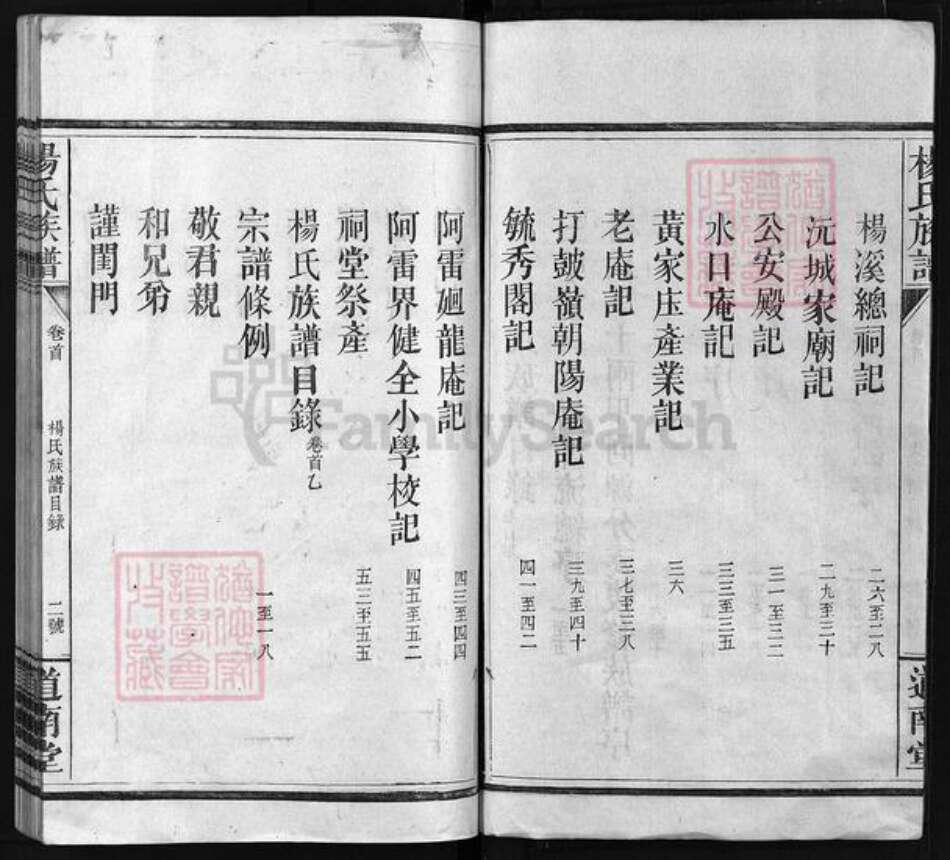 楊氏族譜
道南堂
楊溪總祠記 二六至二八
沅城家廟記 二九至三十
公安殿記 三一至三二
水口庵記 三三至三五
黃家庄產業記 三六
老庵記 三七至三八
打皷嶺朝陽庵記 三九至四十
毓秀閣記 四一至四二
阿雷廻龍庵記 四三至四四
阿雷界健全小學校記 四五至五二
祠堂祭產 五三至五五
楊氏族譜目錄 卷首乙
宗譜條例 一至一八
敬君親
和兄弟
謹閨門
楊氏族譜 卷首 楊氏族譜目錄 二號 道南堂
FamilySearch